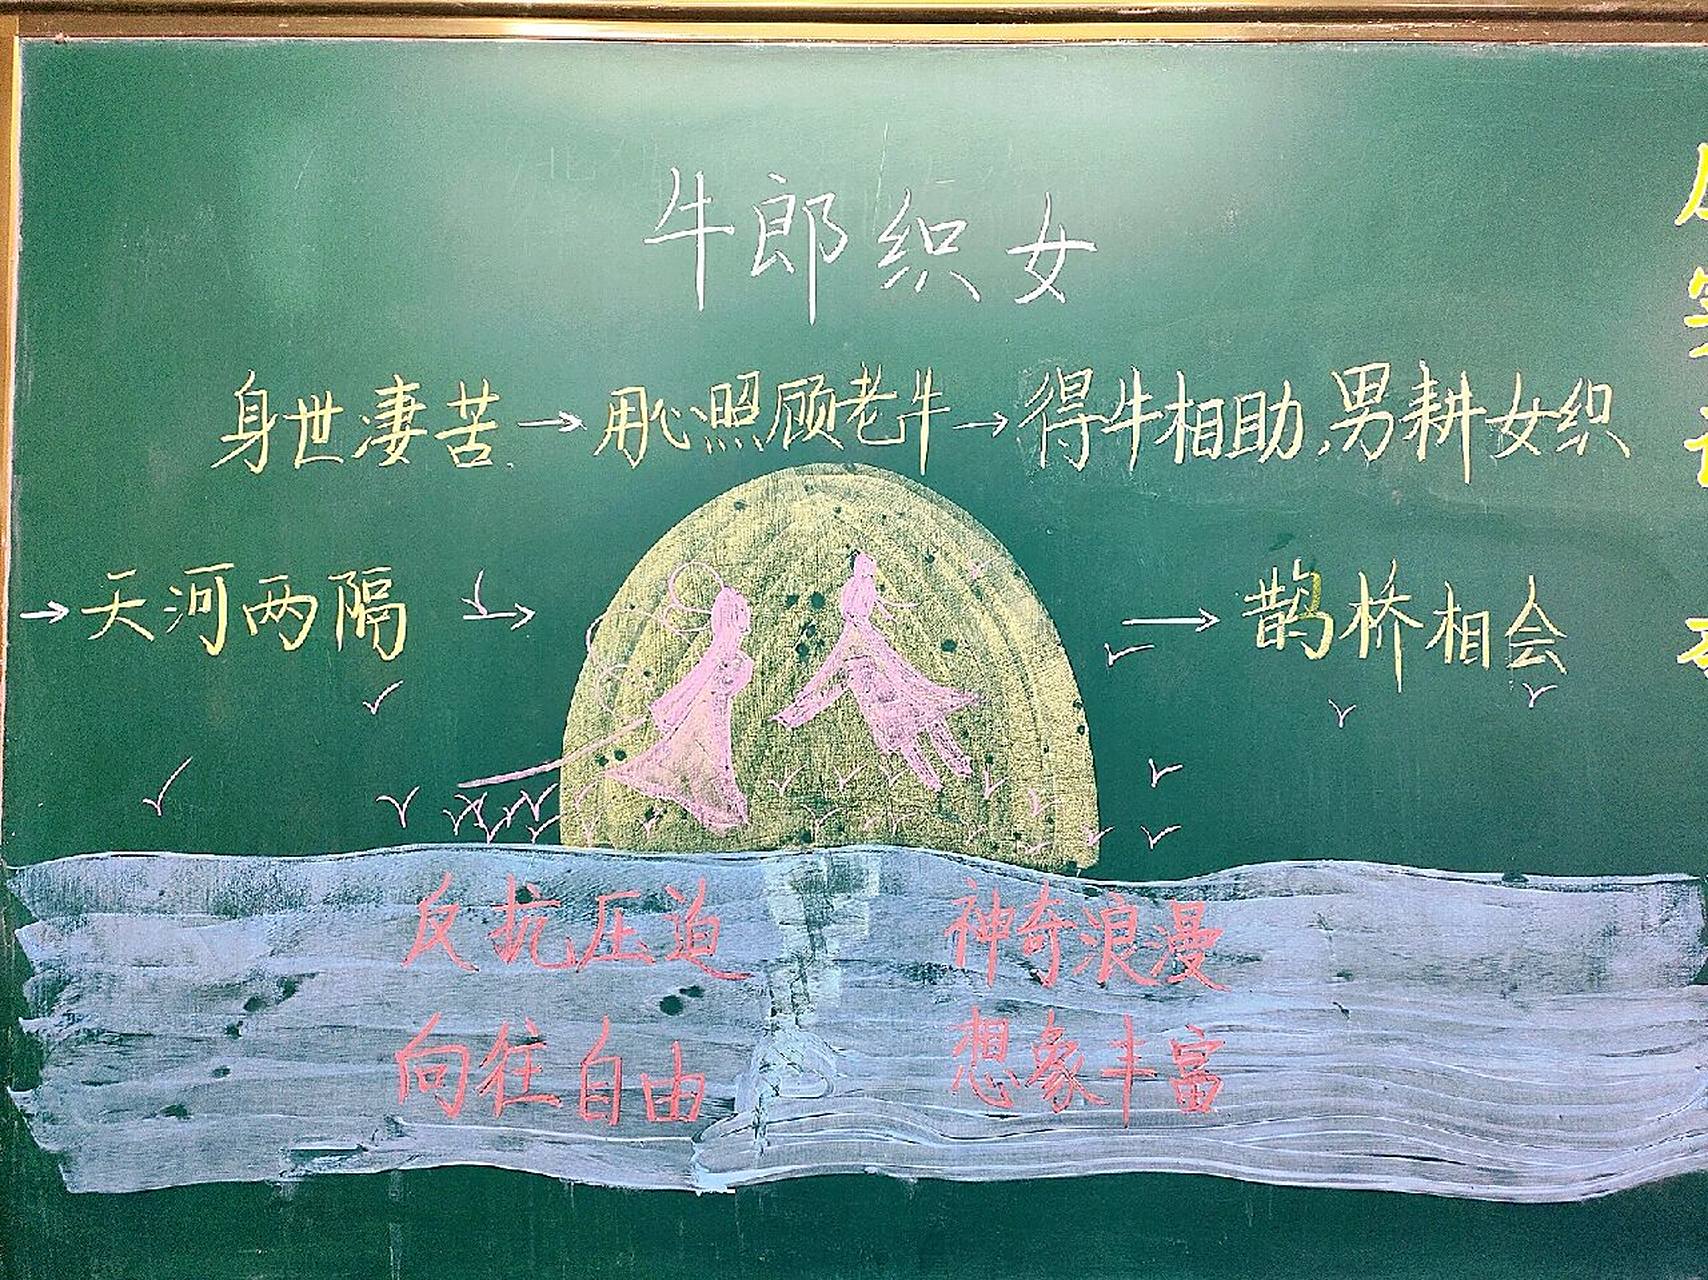 牛郎织女
身世凄苦→用心照顾老牛→得牛相助,男耕女织
→天河两隔 → → 鹊桥相会
反抗压迫 神奇浪漫
向往自由 想象丰富